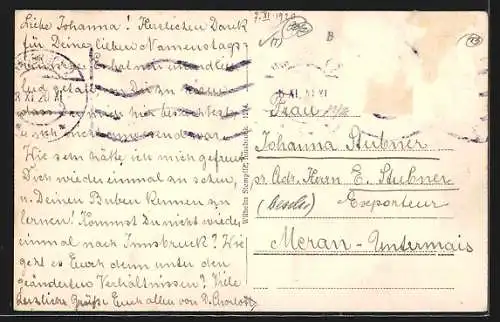 Liebe Johanna! Herzlichen Dank
für Deine lieben Namenstags-
Es hat mir unendlich
leid getan, daß Du
mich hier
u. ich nicht anwesend war.
Wie sehr hätte ich mich gefreut
Dich wieder einmal zu sehen,
u. Deinen Buben kennen zu
lernen! Kommst Du nicht wieder
einmal nach Innsbruck? Wie
geht es Euch denn unter den
geänderten Verhältnissen? Viele
herzliche Grüße Euch allen von D. Charlotte
Wilhelm Stempfle, Innsbruck.
7.XI.1920
B
XI. 20 XI
Frau
Johanna Stubner
pr. Adr. Herrn E. Stubner
Exporteur
Meran-Untermais